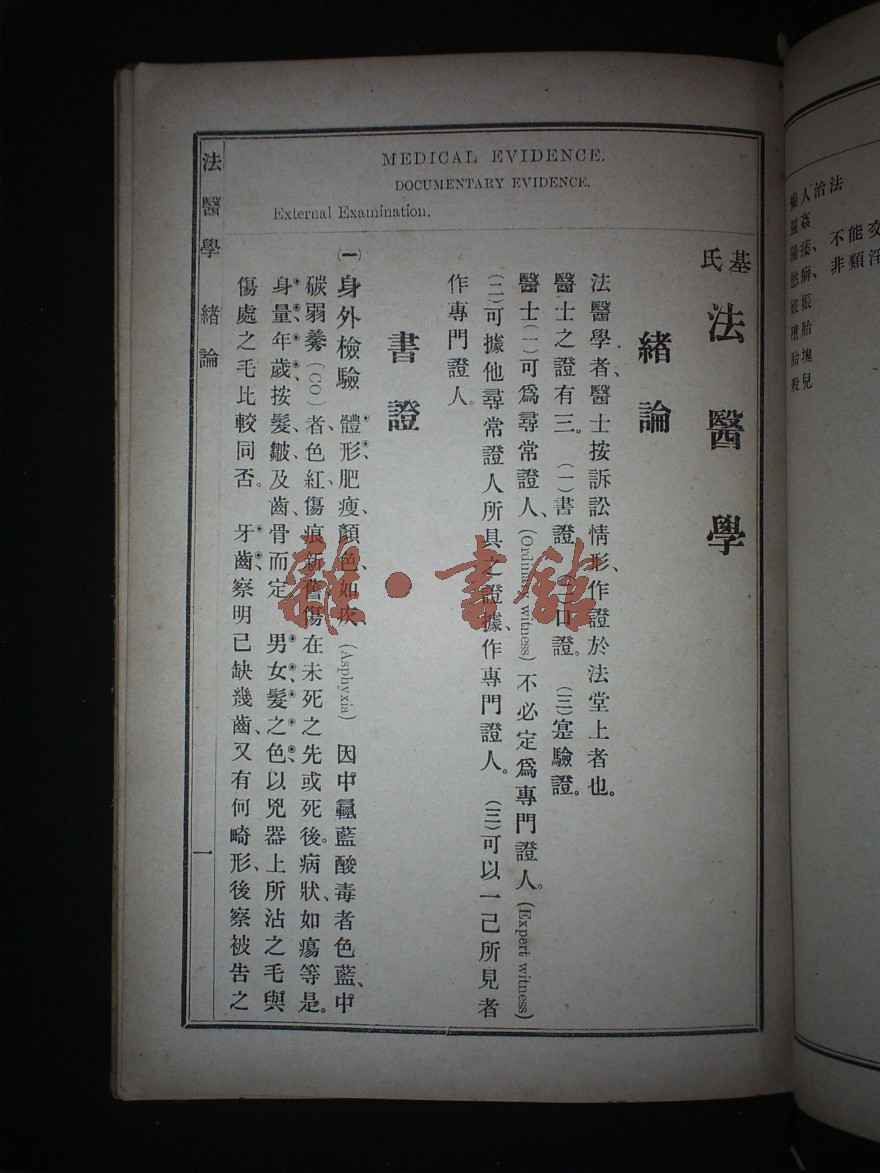 MEDICAL EVIDENCE.
DOCUMENTARY EVIDENCE.
External Examination.
基氏 法醫學
緒論
法醫學者、醫士按訴訟情形、作證於法堂上者也。
醫士之證有三。(一)書證。(二)口證。(三)寔驗證。
醫士(一)可爲尋常證人、(Ordinary witness)不必定爲專門證人。(Expert witness)
(二)可據他尋常證人所具之證據、作專門證人。(三)可以一己所見者
作專門證人。
書證
(一)身外檢驗 體形、肥瘦、顏色、如 (Asphyxia) 因中 藍酸毒者色藍、中
碳弱養(CO)者色紅、傷痕新舊、傷在未死之先或死後。病狀、如瘍等是。
身量、年歲、按髮、皺、及齒、骨而定 男女、髮之色、以兇器上所沾之毛與
傷處之毛比較同否。 牙齒、察明已缺幾齒、又有何畸形、後察被告之
法醫學 緒論
一
癲人治法
强姦
陽痿、不能交
慾癖、非類淫
妊娠
墮胎
胎塊
殺兒
雜·書館